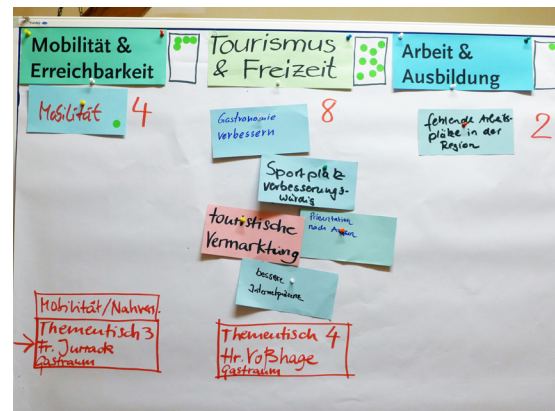 Mobilität &
Erreichbarkeit
Mobilität
4
Mobilität/Nahvers.
Thementisch 3
Fr. Jurrack
Gastraum
Tourismus
& Freizeit
8
Gastronomie
verbessern
Sportplatz
verbesserungs-
würdig
touristische
Vermarktung
Präsentation
nach Außen
bessere
Internetpräsenz
Thementisch 4
Hr. Voßhage
Gastraum
Arbeit &
Ausbildung
fehlende Arbeits-
plätze in der
Region
2